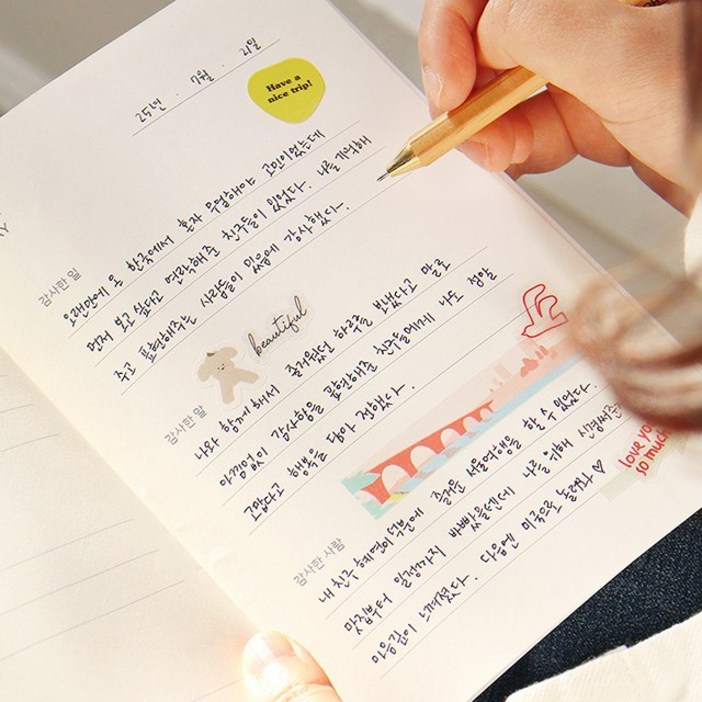 25년 . 7월 . 21일
Have a
nice trip!
감사한 일
오랜만에 온 한국에서 혼자 무얼해야 고민이었는데
먼저 보고 싶다고 연락해준 친구들이 있었다. 나를 기억해
주고 표현해주는 사람들이 있음에 감사했다.
beautiful
감사한 말
나와 함께 해서 즐거웠던 하루를 보냈다고 말로
아낌없이 감사함을 표현해준 친구들에게 나도 정말
고맙다고 행복을 담아 전했다.
감사한 사람
내 친구 혜연이 덕분에 즐거운 서울여행을 할 수 있었다.
맛집부터 일정까지 바빴을텐데 나를 위해 신경써준
마음깊이 느껴졌다. 다음엔 미국으로 놀러와 ♡
love you
so much